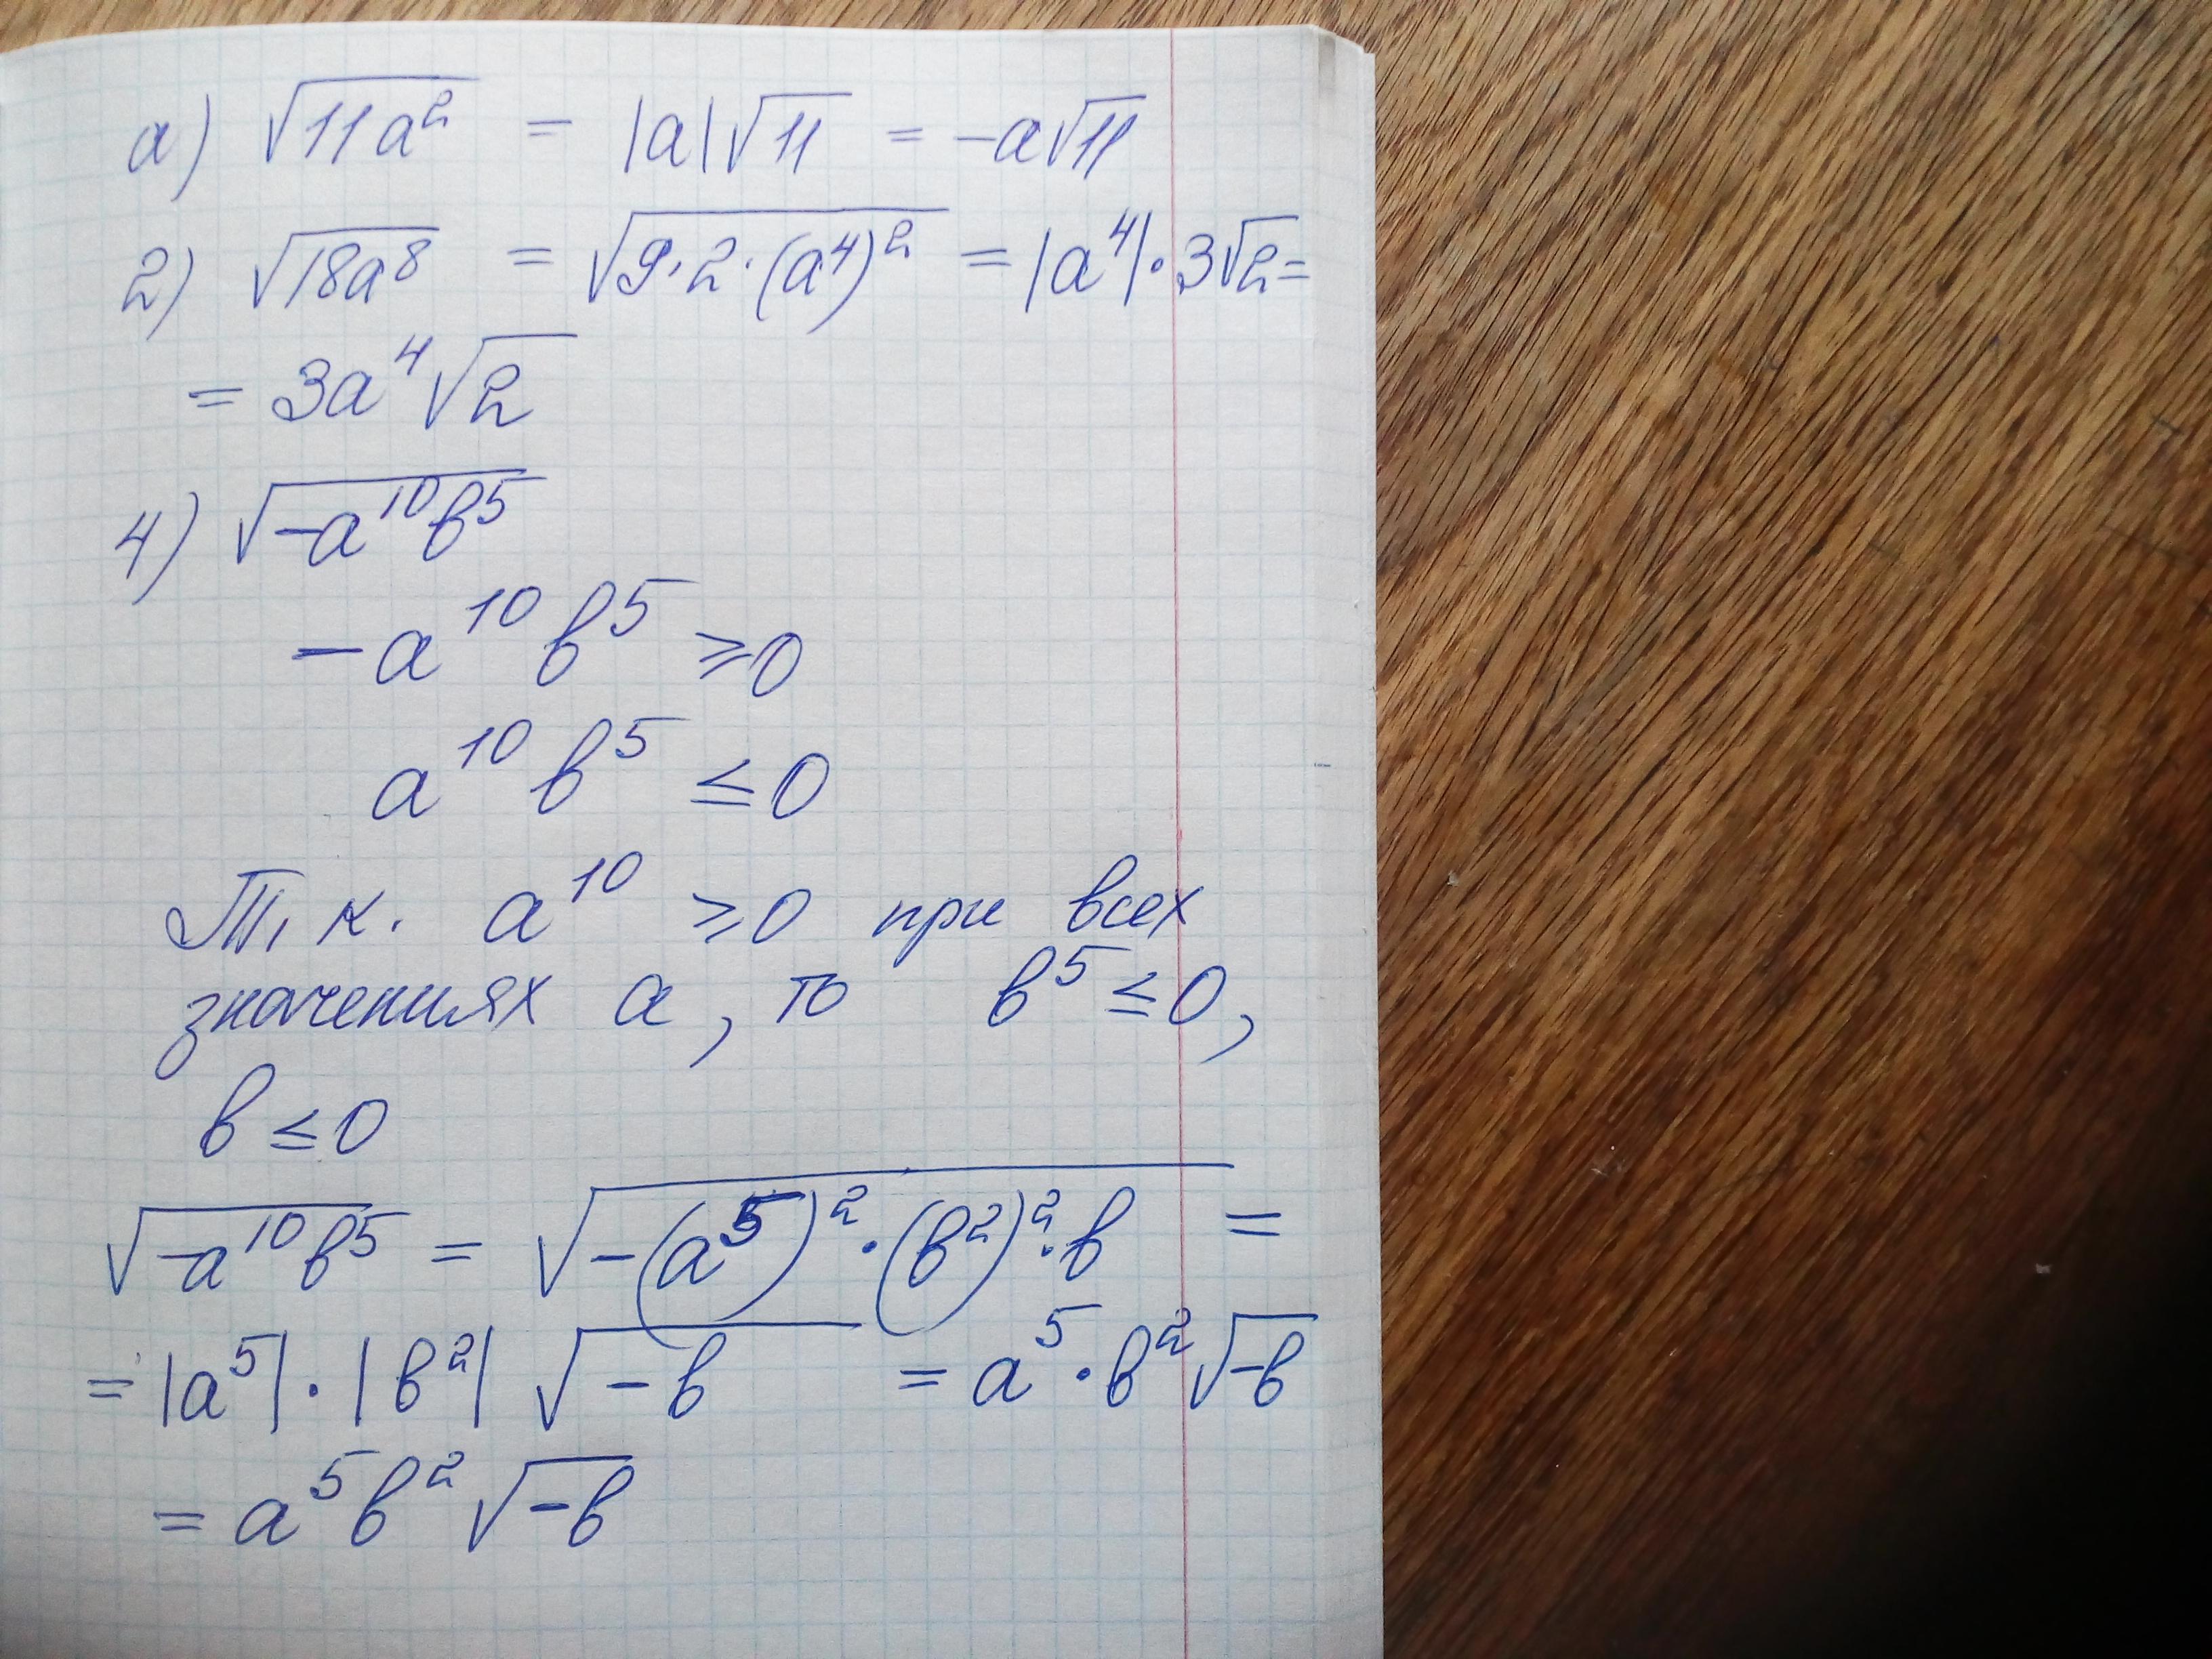 а) √11a² = |a|√11 = -a√11
2) √18a⁸ = √9·2·(a⁴)² = |a⁴|·3√2=
= 3a⁴√2
4) √-a¹⁰b⁵
-a¹⁰b⁵ ≥0
a¹⁰b⁵ ≤ 0
Т.к. a¹⁰ ≥0 при всех
значениях a, то b⁵ ≤ 0,
b ≤ 0
√-a¹⁰b⁵ = √-(a⁵)²·(b²)²·b =
= |a⁵|·|b²| √-b = a⁵·b²√-b
= a⁵b²√-b